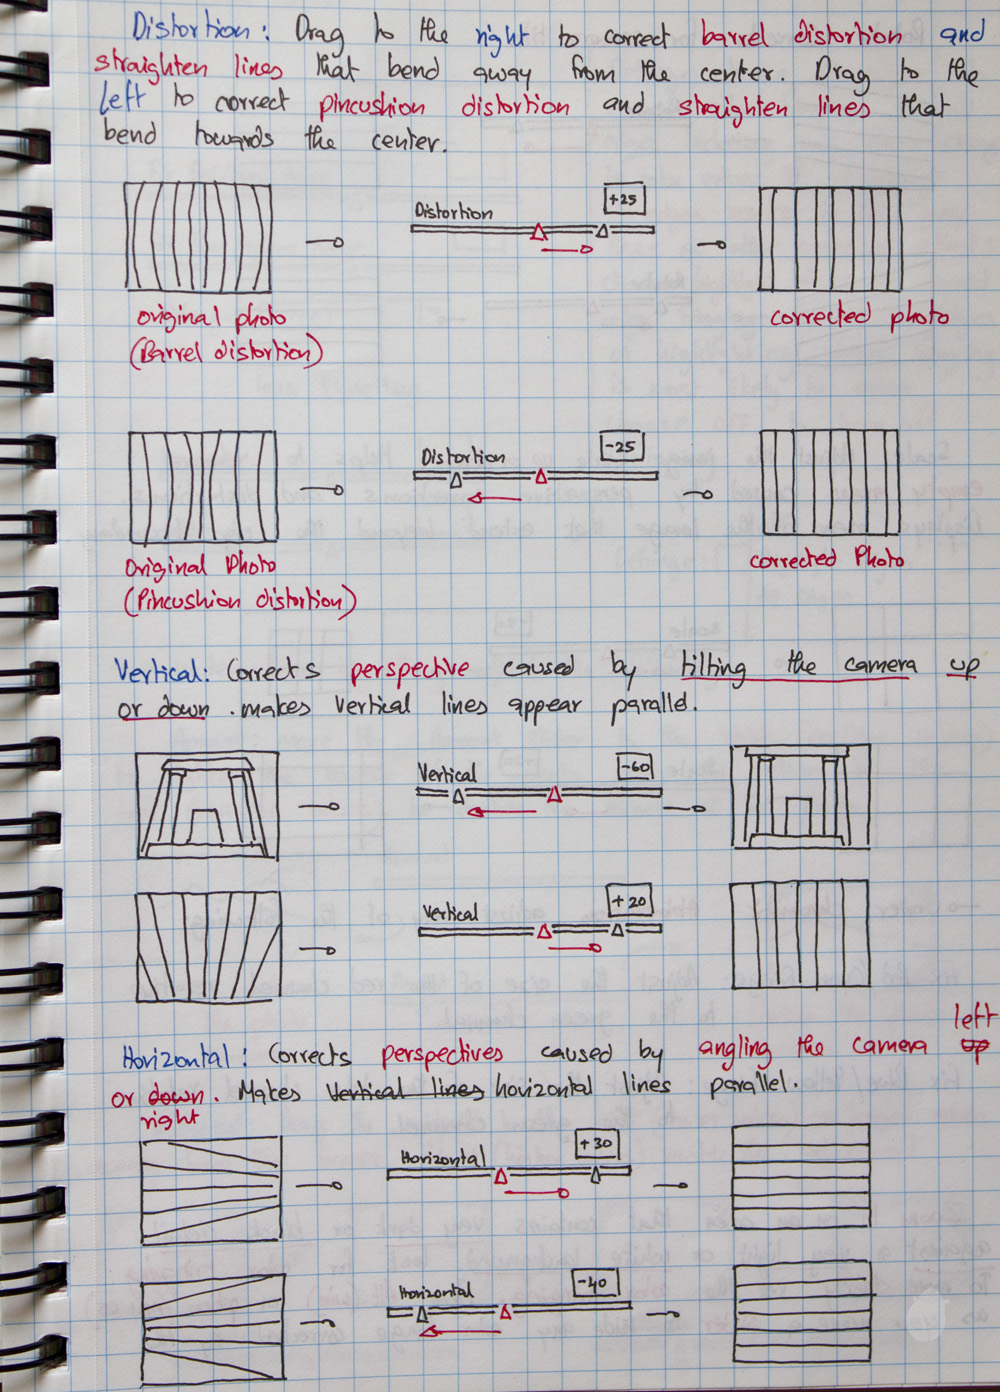 Distortion: Drag to the right to correct barrel distortion and
straighten lines that bend away from the center. Drag to the
left to correct pincushion distortion and straighten lines that
bend towards the center.
Distortion
+25
original photo
(Barrel distortion)
corrected photo
Distortion
-25
Original Photo
(Pincushion distortion)
corrected Photo
Vertical: Corrects perspective caused by tilting the camera up
or down. makes vertical lines appear parallel.
Vertical
-60
Vertical
+20
left
Horizontal: Corrects perspectives caused by angling the camera up
or down. Makes Vertical lines horizontal lines parallel.
right
Horizontal
+30
Horizontal
-40